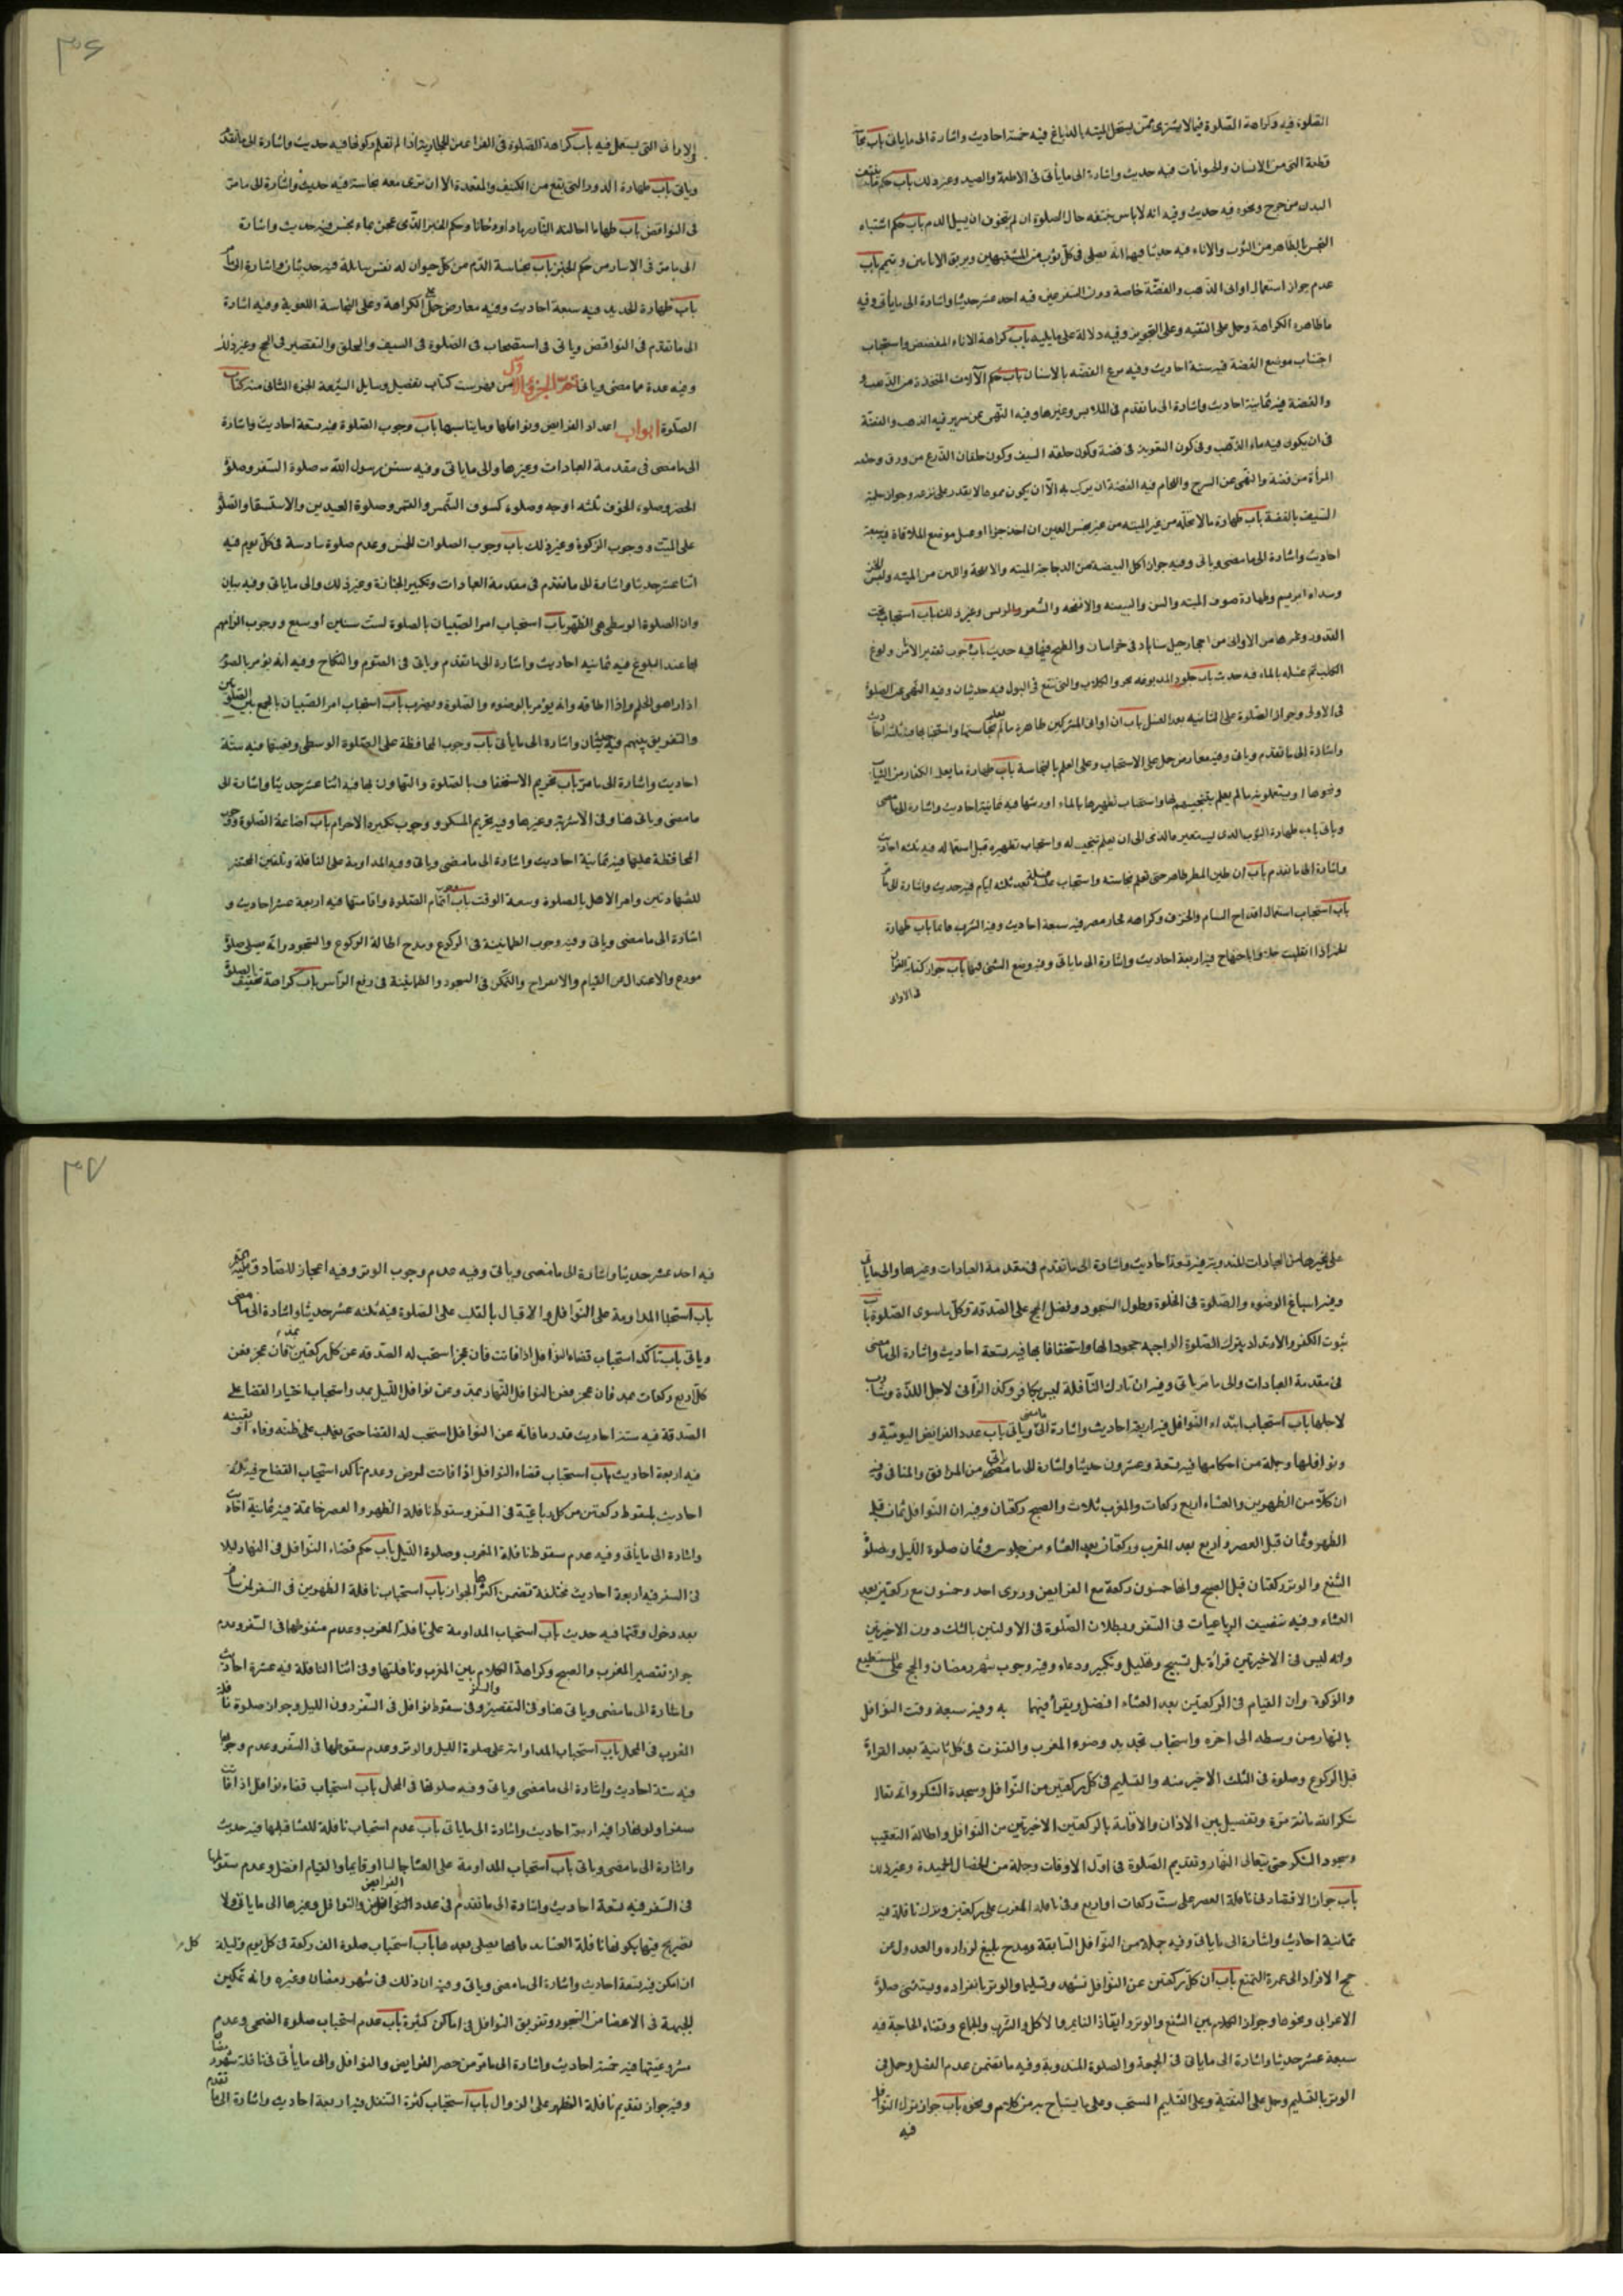 الصلوة فيه وكراهة الصلوة فيما لا يشترى ممن يستحل الميته بالدباغ فيه خمسة احاديث واشارة الى ما ياتى باب نجاسة
قطعة التى من الانسان والحيوانات فيه حديث واشارة الى ما يأتى فى الاطعمة والصيد وغير ذلك باب حكم
البدن من جرح ونحوه فيه حديث وفيه انه لا باس بنتفه حال الصلوة ان لم يتخوف ان يسيل الدم باب حكم اشتباه
النجس بالطاهر من الثوب والاناء فيه حديثان فيهما انه يصلى فى كل ثوب من المشتبهين ويريق الانائين ويتيمم باب
عدم جواز استعمال اوانى الذهب والفضة خاصة دون الصفر فيه احد عشر حديثا واشارة الى ما يأتى وفيه
ما ظاهره الكراهة وحمل على التقيه وعلى التجويز وفيه دلالة على ما يليه باب كراهة الاناء المفضض واستحباب
اجتناب موضع الفضة فيه ستة احاديث وفيه الفضه بالاسنان باب حكم الآلات المتخذة من الذهب
والفضة فيه ثمانية احاديث واشارة الى ما تقدم فى الملابس وغيرها وفيه النهى عن سرير فيه الذهب والفضة
فى ان يكون فيه ماء الذهب وفى كون التعويذ فى فضة وكون حلقه السيف وكون حلقتان الدرع من ورق
المرأة من فضة والنهى عن السرج واللجام فيه الفضة ان يركب به الا ان يكون مموها لا يقدر على نزعه وجواز حلية
السيف بالفضة باب طهارة ما لا تحله من غير الميته من غير نجس العين ان اخذ جزا او غسل موضع الملاقاة فيه سبعة
احاديث واشارة الى ما مضى وياتى وفيه جواز اكل البيضة من الدجاجة الميته والانفحة واللبن من الميته ولبس الخز
وسداه ابريسم وطهارة صوف الميته والسن والبيضه والانفحه والشعر والريش وغير ذلك باب استحباب نحت
القدور وغيرها من الاوانى من احجار جبل سناباد فى خراسان والطبخ فيها فيه حديث باب وجوب تعفير الاناء من ولوغ
الكلب ثم غسله بالماء فيه حديث باب جلود المدبوغه بخرء الكلاب والتى تنقع فى البول فيه حديثان وفيه النهى عن الصلوة
فى الاولى وجواز الصلوة على الثانيه بعد الغسل باب ان اوانى المشركين طاهرة ما لم يعلم نجاستها واستحباب اجتنابها فيه ثلثة احاديث
واشارة الى ما تقدم وياتى وفيه معارض حمل على الاستحباب وعلى العلم بالنجاسة باب طهارة ما يعمله الكفار من الثياب
ونحوها او يستعملونه ما لم يعلم بتنجيسهم لها واستحباب تطهيرها بالماء او رشها فيه ثمانية احاديث واشارة الى ما مضى
وياتى باب طهارة الثوب الذى يستعيره الذمى الى ان يعلم تنجيسه له واستحباب تطهيره قبل استعماله فيه ثلثة احاديث
واشارة الى ما تقدم باب ان طين المطر طاهر حتى تعلم نجاسته واستحباب غسله بعد ثلثة ايام فيه حديث واشارة الى ما مر
باب استحباب استعمال اقداح الشام والخزف وكراهة فخار مصر فيه سبعة احاديث وفيه الشرب قائما باب طهارة
الخمر اذا انقلبت خلا واباحتها فيه اربعة احاديث واشارة الى ما ياتى وفيه وضع الشئ فيها باب جواز كتابة القران
فى الاوانى
٣٦
فى الاوانى التى يستعمل فيه باب كراهة الصلوة فى الفراء من الحجازية اذا لم تعلم ذكوتها فيه حديث واشارة الى ما تقدم
وياتى باب طهارة الدود التى يقع من الكنيف والمقعدة الا ان ترى معه نجاسة فيه حديث واشارة الى ما مر
فى النواقض باب طهارة ما احالته النار رمادا ودخانا وحكم الخبز الذى عجن بماء نجس فيه حديث واشارة
الى ما مر فى الاسار من حكم الخبز باب نجاسة الدم من كل حيوان له نفس سائلة فيه حديثان واشارة الى ما مر
باب طهارة الحديد فيه سبعة احاديث وفيه معارض حمل على الكراهة وعلى النجاسة اللغوية وفيه اشارة
الى ما تقدم فى النواقض وياتى فى استصحاب فى الصلوة فى السيف والحلق والتقصير فى الحج وغير ذلك
وفيه عدة مما مضى وياتى تمت الجزء الاول من فهرست كتاب تفصيل وسايل الشيعة الجزء الثانى منه كتاب
الصلوة ابواب اعداد الفرايض ونوافلها وما يناسبها باب وجوب الصلوة فيه تسعة احاديث واشارة
الى ما مضى فى مقدمة العبادات وغيرها والى ما ياتى وفيه سنن رسول الله صلوة السفر وصلوة
الحضر وصلوة الخوف ثلثه اوجه وصلوة كسوف الشمس والقمر وصلوة العيدين والاستسقا والصلوة
على الميت ووجوب الزكوة وغير ذلك باب وجوب الصلوات الخمس وعدم صلوة سادسة فى كل يوم فيه
اثنا عشر حديثا واشارة الى ما تقدم فى مقدمة العبادات وتكبير الجنازة وغير ذلك والى ما ياتى وفيه بيان
وان الصلوة الوسطى هى الظهر باب استحباب امر الصبيان بالصلوة لست سنين او سبع ووجوب الزامهم
بها عند البلوغ فيه ثمانيه احاديث واشارة الى ما تقدم وياتى فى الصوم والنكاح وفيه انه يؤمر بالصوم
اذا راهق الحلم واذا اطاقه وانه يؤمر بالوضوء والصلوة ويضرب باب استحباب امر الصبيان بالجمع بين الصلوتين
والتفريق بينهم فيه حديثان واشارة الى ما يأتى باب وجوب المحافظة على الصلوة الوسطى وتعيينها فيه ستة
احاديث واشارة الى ما مر باب تحريم الاستخفاف بالصلوة والتهاون بها فيه اثنا عشر حديثا واشارة الى
ما مضى وياتى هنا وفى الاشربة وغيرها وفيه تحريم المسكر ووجوب تكبيرة الاحرام باب اضاعة الصلوة ووجوب
المحافظة عليها فيه ثمانية احاديث واشارة الى ما مضى وياتى وفيه المداومة على النافلة وتلقين المحتضر
للشهادتين وامر الاهل بالصلوة وسعة الوقت باب اتمام الصلوة واقامتها فيه اربعة عشر احاديث و
اشارة الى ما مضى وياتى وفيه وجوب الطمانينة فى الركوع ومدح اطالة الركوع والسجود وانه يصلى صلوة
مودع والاعتدال من القيام والانفراج والتمكن فى السجود والطمانينة فى رفع الرأس باب كراهة تخفيف الصلوة
على غيرها من العبادات المندوبة فيه تسعة احاديث واشارة الى ما تقدم فى مقدمة العبادات وغيرها والى ما ياتى
وفيه اسباغ الوضوء والصلوة فى الخلوة وطول السجود وفضل الحج على الصدقة وكل ما سوى الصلوة باب
ثبوت الكفر والارتداد بترك الصلوة الواجبه جحودا لها واستخفافا بها فيه تسعة احاديث واشارة الى ما مضى
فى مقدمة العبادات والى ما ياتى وفيه ان تارك النافلة ليس بكافر وكذا الزانى لاجل اللذة وشارب
لاجلها باب استحباب ابتداء النوافل فيه اربعة احاديث واشارة الى ما مضى وياتى باب عدد الفرايض اليومية و
ونوافلها وجملة من احكامها فيه تسعة وعشرون حديثا واشارة الى ما مضى من الموافق والمنافى وفيه
ان كلا من الظهرين والعشاء اربع ركعات والمغرب ثلاث والصبح ركعتان وفيه ان النوافل ثمان قبل
الظهر وثمان قبل العصر واربع بعد المغرب وركعتان بعد العشاء من جلوس وثمان صلوة الليل وصلوة
الشفع والوتر ركعتان قبل الصبح وانها خمسون ركعة مع الفرايض وروى احد وخمسون مع ركعتين بعد
العشاء وفيه تنصيف الرباعيات فى السفر وبطلان الصلوة فى الاولتين بالشك دون الاخيرتين
وانه ليس فى الاخيرتين قراة بل تسبيح وتهليل وتكبير ودعاء وفيه وجوب شهر رمضان والحج على المستطيع
والزكوة وان القيام فى الركعتين بعد العشاء افضل ويقرأ فيهما به وفيه سبعة وقت النوافل
بالنهار من وسطه الى اخره واستحباب تجديد وضوء المغرب والقنوت فى كل ثانية بعد القراة
قبل الركوع وصلوة فى الثلث الاخير منه والتسليم فى كل ركعتين من النوافل وسجدة الشكر وانه يقال
شكرا لله مائة مرة وتفصيل بين الاذان والاقامة بالركعتين الاخيرتين من النوافل واطالة التعقيب
وسجود الشكر حتى يتعالى النهار وتقديم الصلوة فى اول الاوقات وجملة من الخصال الحميدة وغير ذلك
باب جواز الاقتصار فى نافلة العصر على ست ركعات او اربع وفى نافلة المغرب على ركعتين وترك نافلة فيه
ثمانية احاديث واشارة الى ما ياتى وفيه جملة من النوافل السابقة ومدح بليغ لزرارة والعدول من
حج الافراد الى عمرة التمتع باب ان كل ركعتين عن النوافل تشهد وتسليما والوتر بانفراده ويستثنى صلوة
الاعرابى ونحوها وجواز الكلام بين الشفع والوتر وايقاظ النايم والاكل والشرب والجماع وقضاء الحاجة فيه
سبعة عشر حديثا واشارة الى ما ياتى فى الجمعة والصلوة المندوبة وفيه ما يتضمن عدم الفصل وحمل فى
الوتر بالتسليم وحمل على التقية وعلى التسليم المستحب وعلى ما يستباح به من كلام ونحوه باب جواز ترك النوافل
فيه
٣٧
فيه احد عشر حديثا واشارة الى ما مضى وياتى وفيه عدم وجوب الوتر وفيه اعجاز للصادق عليه
باب استحباب المداومة على النوافل والاقبال بالقلب على الصلوة فيه ثلثه عشر حديثا واشارة الى ما مضى
وياتى باب تاكد استحباب قضاء النوافل اذا فاتت فان عجز استحب له الصدقه عن كل ركعتين بمد فان عجز فعن
كل اربع ركعات بمد فان عجز فعن النوافل النهار بمد وعن نوافل الليل بمد واستحباب اختيار القضا على
الصدقة فيه ستة احاديث قدر ما فاته عن النوافل استحب له القضا حتى يغلب على ظنه وفاء او يقينه
فيه اربعة احاديث باب استحباب قضاء النوافل اذا فاتت لمرض وعدم تاكد استحباب القضاء فيه ثلثة
احاديث باب سقوط ركعتين من كل رباعية فى السفر وسقوط نافلة الظهر والعصر خاصة فيه ثمانية احاديث
واشارة الى ما يأتى وفيه عدم سقوط نافلة المغرب وصلوة الليل باب حكم قضاء النوافل فى النهار ليلا
فى السفر فيه اربعة احاديث مختلفة تضمن اكثرها الجواز باب استحباب نافلة الظهرين فى السفر لمن سافر
بعد دخول وقتها فيه حديث باب استحباب المداومة على نافلة المغرب وعدم سقوطها فى السفر وعدم
جواز تقصير المغرب والصبح وكراهة الكلام بين المغرب ونافلتها وفى اثنا النافلة فيه عشرة احاديث
واشارة الى ما مضى وياتى هنا وفى التقصير وفى سقوط نوافل فى السفر دون الليل وجواز صلوة نافلة
المغرب فى المحمل باب استحباب المداومة على صلوة الليل والوتر وعدم سقوطها فى السفر وعدم وجوبها
فيه ستة احاديث واشارة الى ما مضى وياتى وفيه صلوتها فى المحمل باب استحباب قضاء نوافل اذا فاتت
سفرا ولو نهارا فيه اربعة احاديث واشارة الى ما ياتى باب عدم استحباب نافلة للعشا قبلها فيه حديث
واشارة الى ما مضى وياتى باب استحباب المداومة على العشا جالسا او قايما والقيام افضل وعدم سقوطها
فى السفر فيه تسعة احاديث واشارة الى ما تقدم فى عدد الفرايض والنوافل وغيرها الى ما ياتى ولا
تصريح فيها بكونها نافلة العشا بعد ما باب استحباب صلوة الف ركعة فى كل يوم وليلة
ان امكن فيه تسعة احاديث واشارة الى ما مضى وياتى وفيه ان ذلك فى شهر رمضان وغيره وانه تمكين
الجبهة فى الاعضا من السجود وتفريق النوافل فى اماكن كثيرة باب عدم استحباب صلوة الضحى وعدم
مشروعيتها فيه خمسة احاديث واشارة الى ما مر من حصر الفرايض والنوافل والى ما يأتى فى نافلة شهر رمضان
وفيه جواز تقديم نافلة الظهر على الزوال باب استحباب كثرة التنفل فيه اربعة احاديث واشارة الى ما تقدم